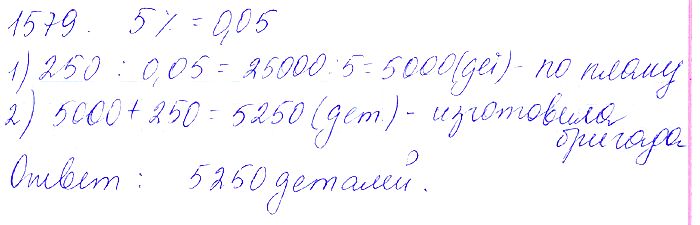 1579. 5% = 0,05
1) 250 : 0,05 = 25000 : 5 = 5000 (дет) - по плану
2) 5000 + 250 = 5250 (дет.) - изготовила
бригада
Ответ: 5250 деталей.